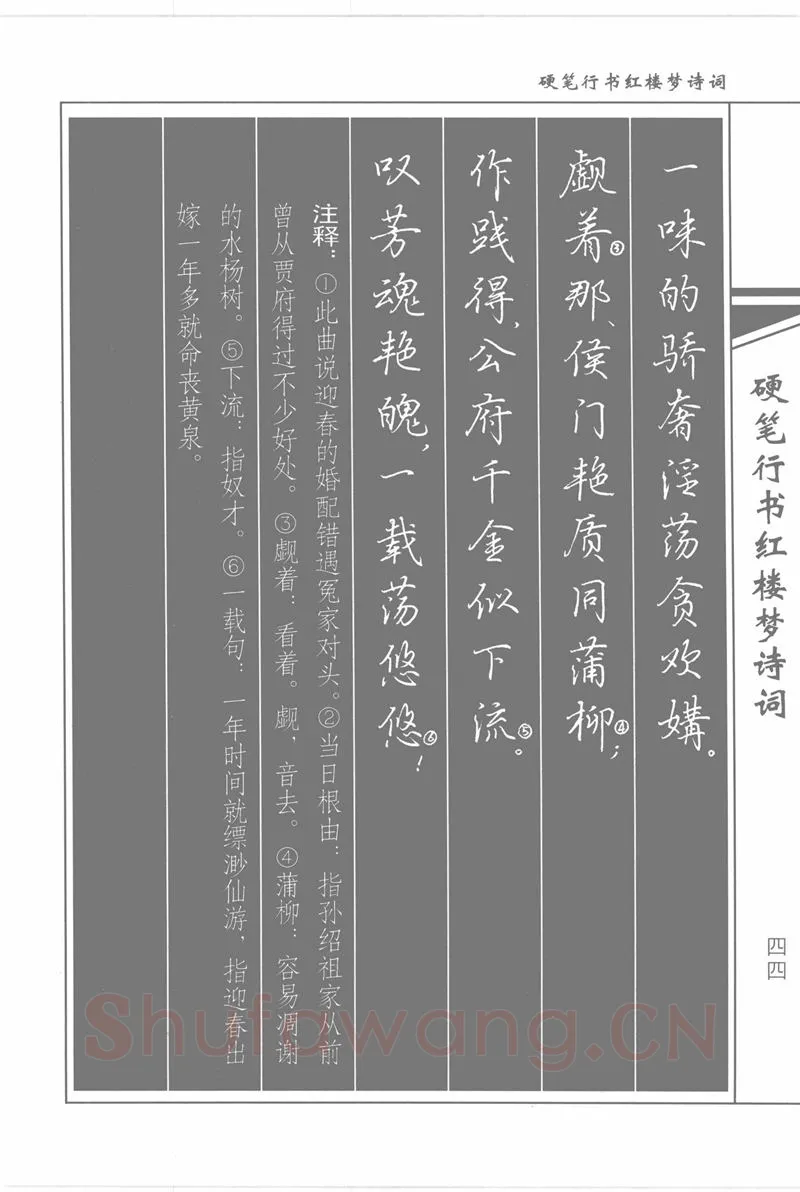 硬笔行书红楼梦诗词
一味的骄奢淫荡贪欢媾。
觑着③那、侯门艳质同蒲柳④;
作践得,公府千金似下流⑤。
叹芳魂艳魄,一载荡悠悠⑥!
注释:①此曲说迎春的婚配错遇冤家对头。②当日根由:指孙绍祖家从前
曾从贾府得过不少好处。③觑着:看着。觑,音去。④蒲柳:容易凋谢
的水杨树。⑤下流:指奴才。⑥一载句:一年时间就缥渺仙游,指迎春出
嫁一年多就命丧黄泉。
硬笔行书红楼梦诗词
四四
Shufawang.CN